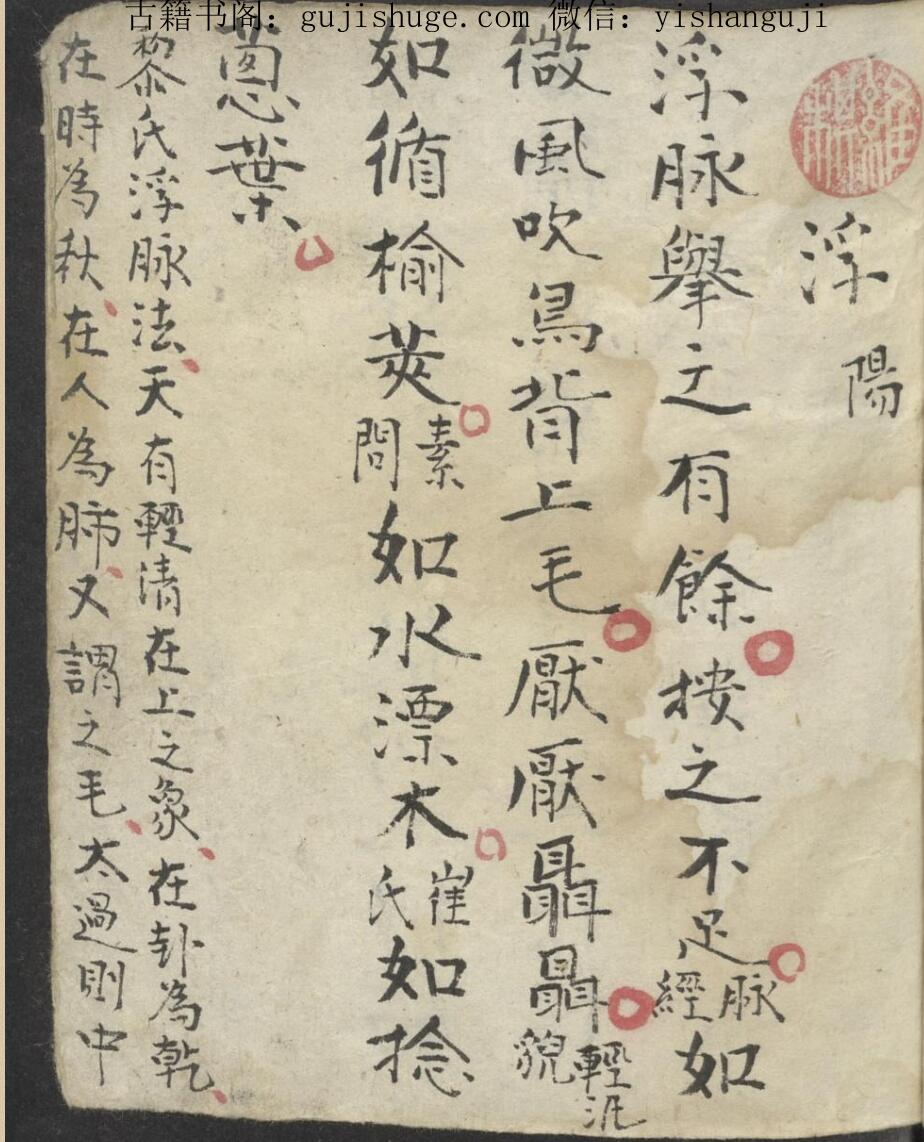 古籍书阁：gujishuge.com 微信：yishanguji
浮 陽
浮脉舉之有餘按之不足脉經如
微風吹鳥背上毛厭厭聶聶輕汎貌
如循榆莢素問如水漂木崔氏如捻
蔥葉
黎氏浮脉法天有輕清在上之象在卦為乾
在時為秋在人為肺又謂之毛太過則中